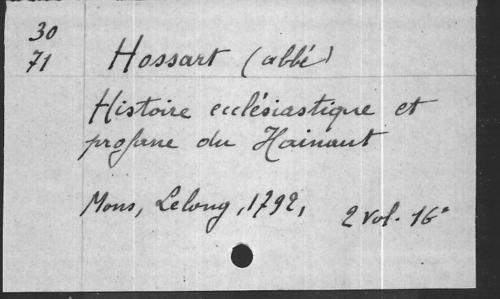 30
71 Hossart (abbé)
Histoire ecclésiastique et
profane du Hainaut
Mons, Lelong, 1792, 2 vol. 16°